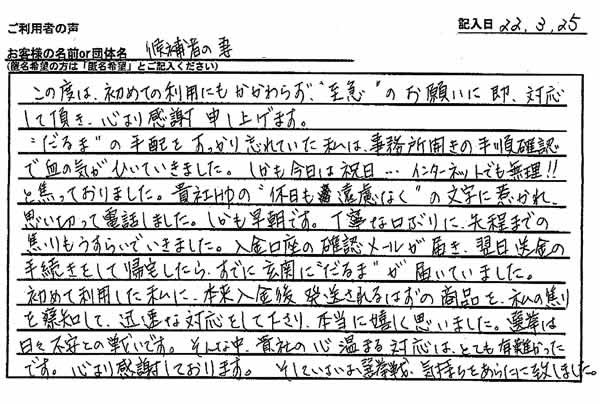 ご利用者の声
記入日 22.3.25
お客様の名前or団体名 候補者の妻
(匿名希望の方は「匿名希望」とご記入ください)
この度は、初めての利用にもかかわらず、"至急"のお願いに即、対応
して頂き、心より感謝申し上げます。
"だるま"の手配をすっかり忘れていた私は、事務所開きの手順確認
で血の気がひいていきました。しかも今日は祝日… インターネットでも無理!!
と焦っておりました。貴社HPの"休日も遠慮なく"の文字に惹かれ、
思い切って電話しました。しかも早朝です。丁寧な口ぶりに、先程までの
焦りもうすらいでいきました。入金口座の確認メールが届き、翌日送金の
手続きをして帰宅したら、すでに玄関に"だるま"が届いていました。
初めて利用した私に、本来入金後発送されるはずの商品を、私の焦り
を察知して、迅速な対応をして下さり、本当に嬉しく思いました。選挙は
日々不安との戦いです。そんな中、貴社の心温まる対応は、とても有難かった
です。心より感謝しております。そしていよいよ選挙戦、気持ちをあらたに致しました。